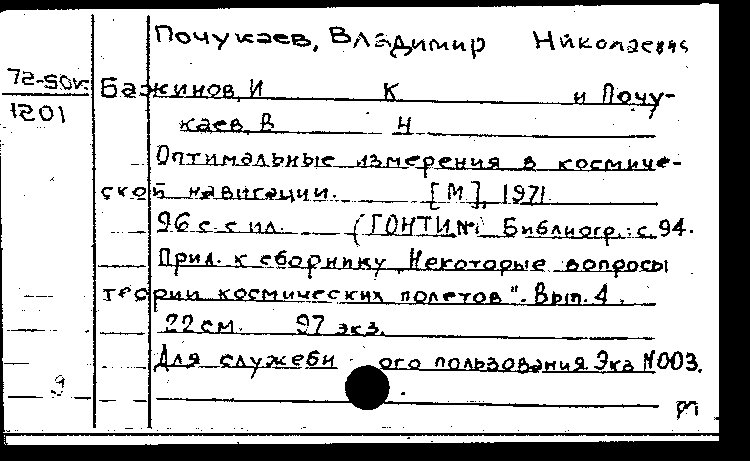 Почукаев, Владимир Николаевич
72-50к
1201
Бажинов, И К и Почу-
каев, В Н
Оптимальные измерения в космиче-
ской навигации. [М], 1971.
96 с с ил. (ГОНТИ №1) Библиогр.: с. 94.
Прил. к сборнику „Некоторые вопросы
теории космических полетов". Вып. 4.
22 см. 97 экз.
Для служебн ого пользования Экз №003.
9